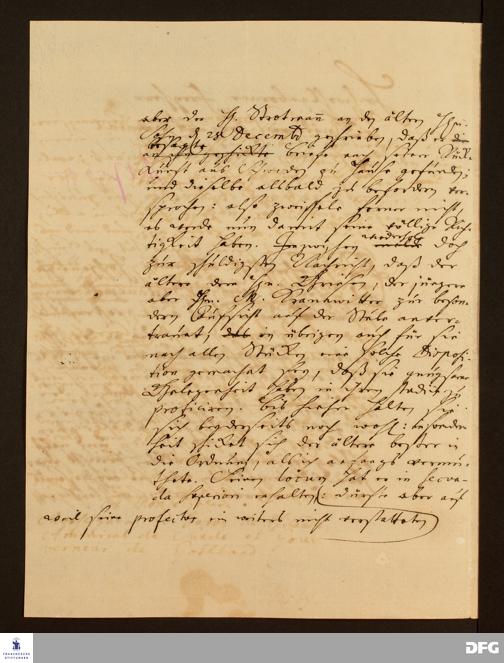 aber der H. Strotmann an den ältern Hrn.
Sohn d. 28 Decembr. geschrieben, daß er die
besagte
briefe nach seiner Rück-
kunft aus Schweden zu Hause gefunden,
und dieselbe alsbald zu befördern ver-
sprochen: alß zweiffele ferner nicht,
es werde nun damit seine völlige Rich-
tigkeit haben. Inzwischen wiederhole doch
zur schuldigsten Nachricht, daß der
ältere dem Hrn. der jüngere
aber Hrn. M. Krannwitter zur beson-
dern Aufsicht auf der Stube anver-
trauet; in übrigen auch für sie
nach allen Stücken eine solche Disposi-
tion gemacht sey, daß sie gnugsame
Gelegenheit haben in ihren studiis zu
proficiren. Bis hieher halten sie
sich beyderseits noch wohl: insonder-
heit schicket sich der ältere besser in
die Ordnung, als ich anfangs vermu-
thete. Seinen locum hat er in Secun-
da Superiori erhalten: dürfte aber auf
weil seine profectus ein weiters nicht verstatteten